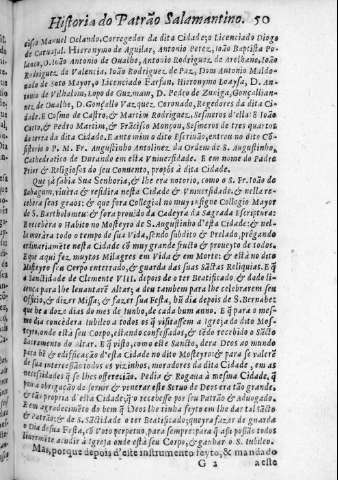 Historia do Patrão Salamantino. 50
cisso Manuel Orlando, Corregedor da dita Cidade; o Licenciado Diogo
de Carvajal, Hieronymo de Aguilar, Antonio Perez, Ioão Baptista Po-
lanco, D. Ioão Antonio de Ovalbe, Antonio Rodriguez de Arelhano, Ioão
Rodriguez da Valencia, Ioão Rodriguez de Paz, Dom Antonio Maldo-
nado de Soto Mayor, o Licenciado Farfan, Hieronymo Loaysa, D. An-
tonio de Vilhalom, Lopo de Guzmam, D. Pedro de Zuniga, Gonçallian-
nez de Ovalbe, D. Gonçallo Vazquez Coronado, Regedores da dita Ci-
dade. E Cosmo de Castro, & Martim Rodriguez, Sesmeros d'ella: & Ioão
Curto, & Pedro Martim, & Frãcisco Monçon, Sesmeros de tres quartos
da terra da dita Cidade. E ante mim o dito Escrivão, entrou no dito Cõ-
sistorio o P. M. Fr. Augustinho Antolinez da Ordem de S. Augustinho,
Cathedratico de Durando em esta Vniversidade. E em nome do Padre
Prior & Religiosos do seu Convento, propós à dita Cidade.
Que já sabia Sua Senhoria, & lhe era notorio, como o S. Fr. Ioão de
Sahagum, vivèra & residira nesta Cidade & Vniversidade, & nella re-
cebera seus graos: & que fora Collegial no muy insigne Collegio Mayor
de S. Bartholomeu: & fora provido da Cadeyra da Sagrada Escriptura:
E recebera o Habito no Mosteyro de S. Augustinho d'esta Cidade: & nel-
le moràra todo o tempo de sua Vida, sendo subdito & Prelado, prègando
ordinariamẽte nesta Cidade cõ muy grande fructo & proveyto de todos.
E que aqui fez muytos Milagres em Vida & em Morte: & está no dito
Mosteyro seu Corpo enterrado, & guarda das suas Sãctas Reliquias. E q̃
a Sanctidade de Clemente VIII. depois de o ter Beatificado & dado li-
cença para lhe levantarẽ Altar; a deu tambem para lhe celebrarem seu
Officio, & dizer Missa, & fazer sua Festa, hũ dia depois de S. Bernabez
que he a doze dias do mes de Iunho, de cada hum anno. E q̃ para o mes-
mo dia concedera Iubileo a todos os q̃ visitassem a Igreja do dito Mos-
teyro, onde está seu Corpo, estando confessados, & tẽdo recebido o Sãcto
Sacramento do Altar. E q̃ visto, como este Sancto, dera Deos ao mundo
para bẽ & edificação d'esta Cidade no dito Mosteyro: & para se valerẽ
de sua intercessão todos os vizinhos, moradores da dita Cidade, em as
necessidades q̃ se lhes offereção. Pedia & Rogava à mesma Cidade, q̃
pois a obrigação de servir & venerar este Servo de Deos era tão grande,
& tão propria d'esta Cidade; q̃ o recebesse por seu Patrão & advogado.
E em agradecimẽto do bem q̃ Deos lhe tinha feyto em lhe dar tal Sãcto
& Patrão: & de S. Sãctidade o ter Beatificado; queyra fazer de guarda
o Dia de sua Festa, cõ Voto perpetuo, para sempre: para q̃ assi possão todos
livremẽte acudir à Igreja onde está seu Corpo, & ganhar o S. Iubileo.
Mas, porque depois d'este instrumento feyto, & mandado
G 2 a este